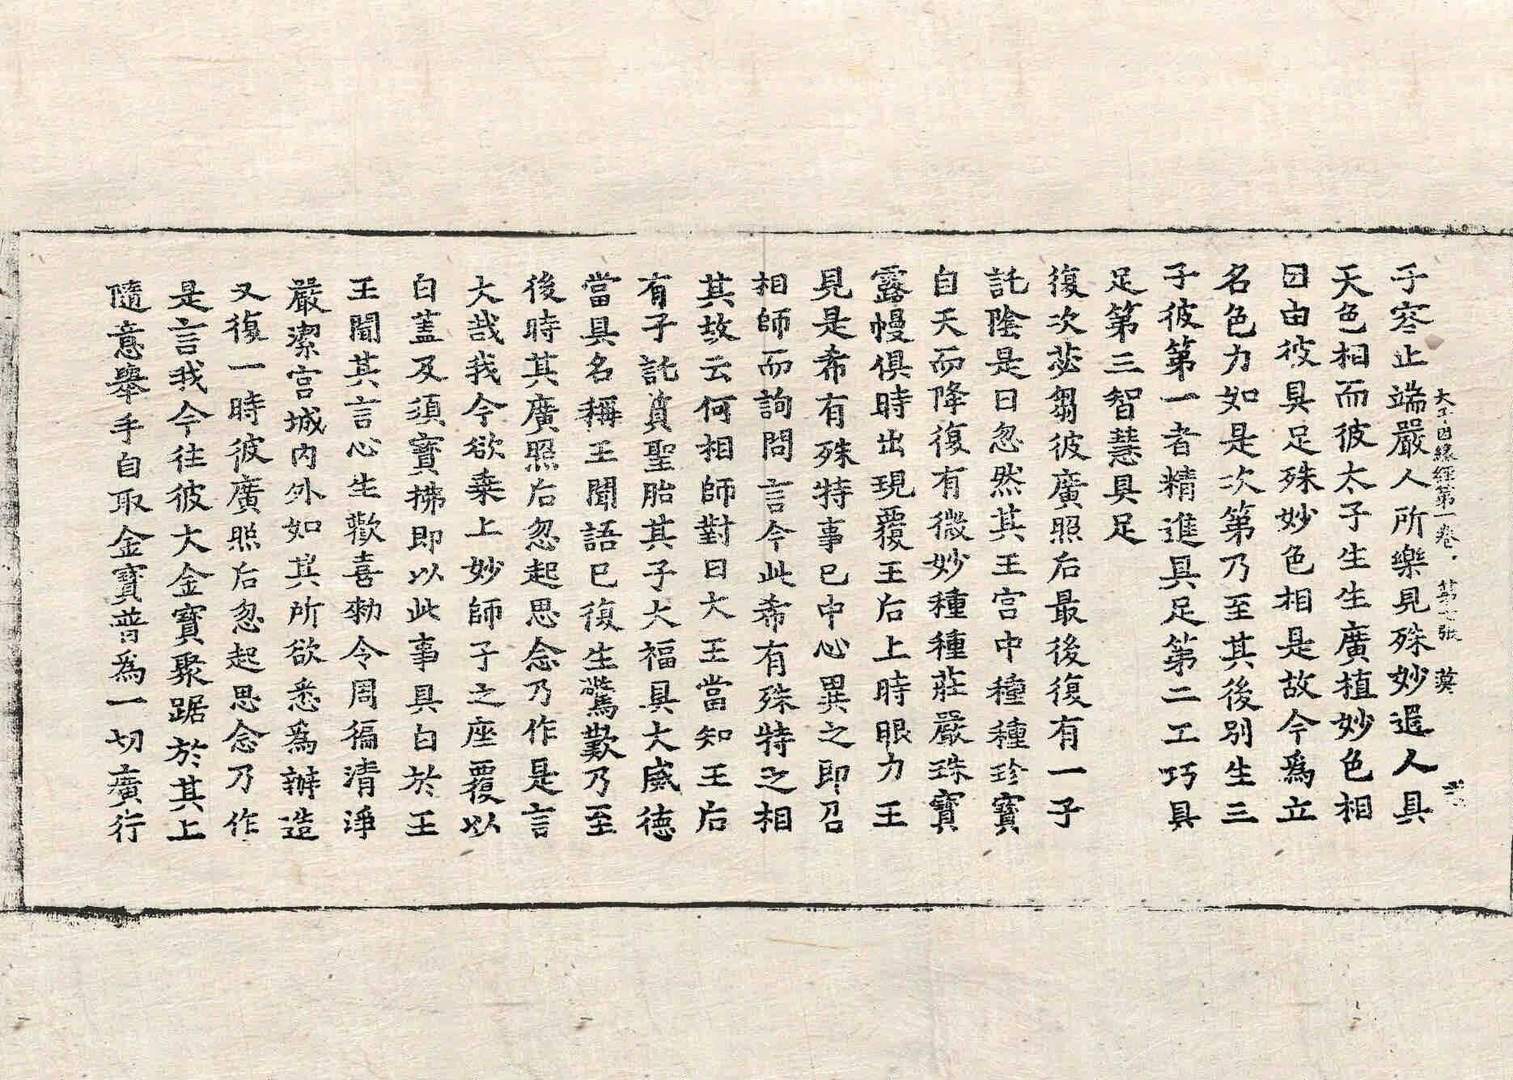 因緣經第一卷 第 張
子容止端嚴人所樂見殊妙過人具
天色相而彼太子生生廣植妙色相
因由彼具足殊妙色相是故今爲立
名色力如是次第乃至其後別生三
子彼第一者精進具足第二工巧具
足第三智慧具足
復次苾芻彼廣照后最後復有一子
託陰是日忽然其王宮中種種珍寶
自天而降復有微妙種種莊嚴珠寶
露幔俱時出現覆王后上時眼力王
見是希有殊特事已中心異之即召
相師而詢問言今此希有殊特之相
其故云何相師對曰大王當知王后
有子託質聖胎其子大福具大威德
當具名稱王聞語已復生驚歎乃至
後時其廣照后忽起思念乃作是言
大哉我今欲乘上妙師子之座覆以
白蓋及須寶拂即以此事具白於王
王聞其言心生歡喜勑令周徧清淨
嚴潔宮城內外如其所欲悉爲辦造
又復一時彼廣照后忽起思念乃作
是言我今往彼大金寶聚踞於其上
隨意舉手自取金寶普爲一切廣行